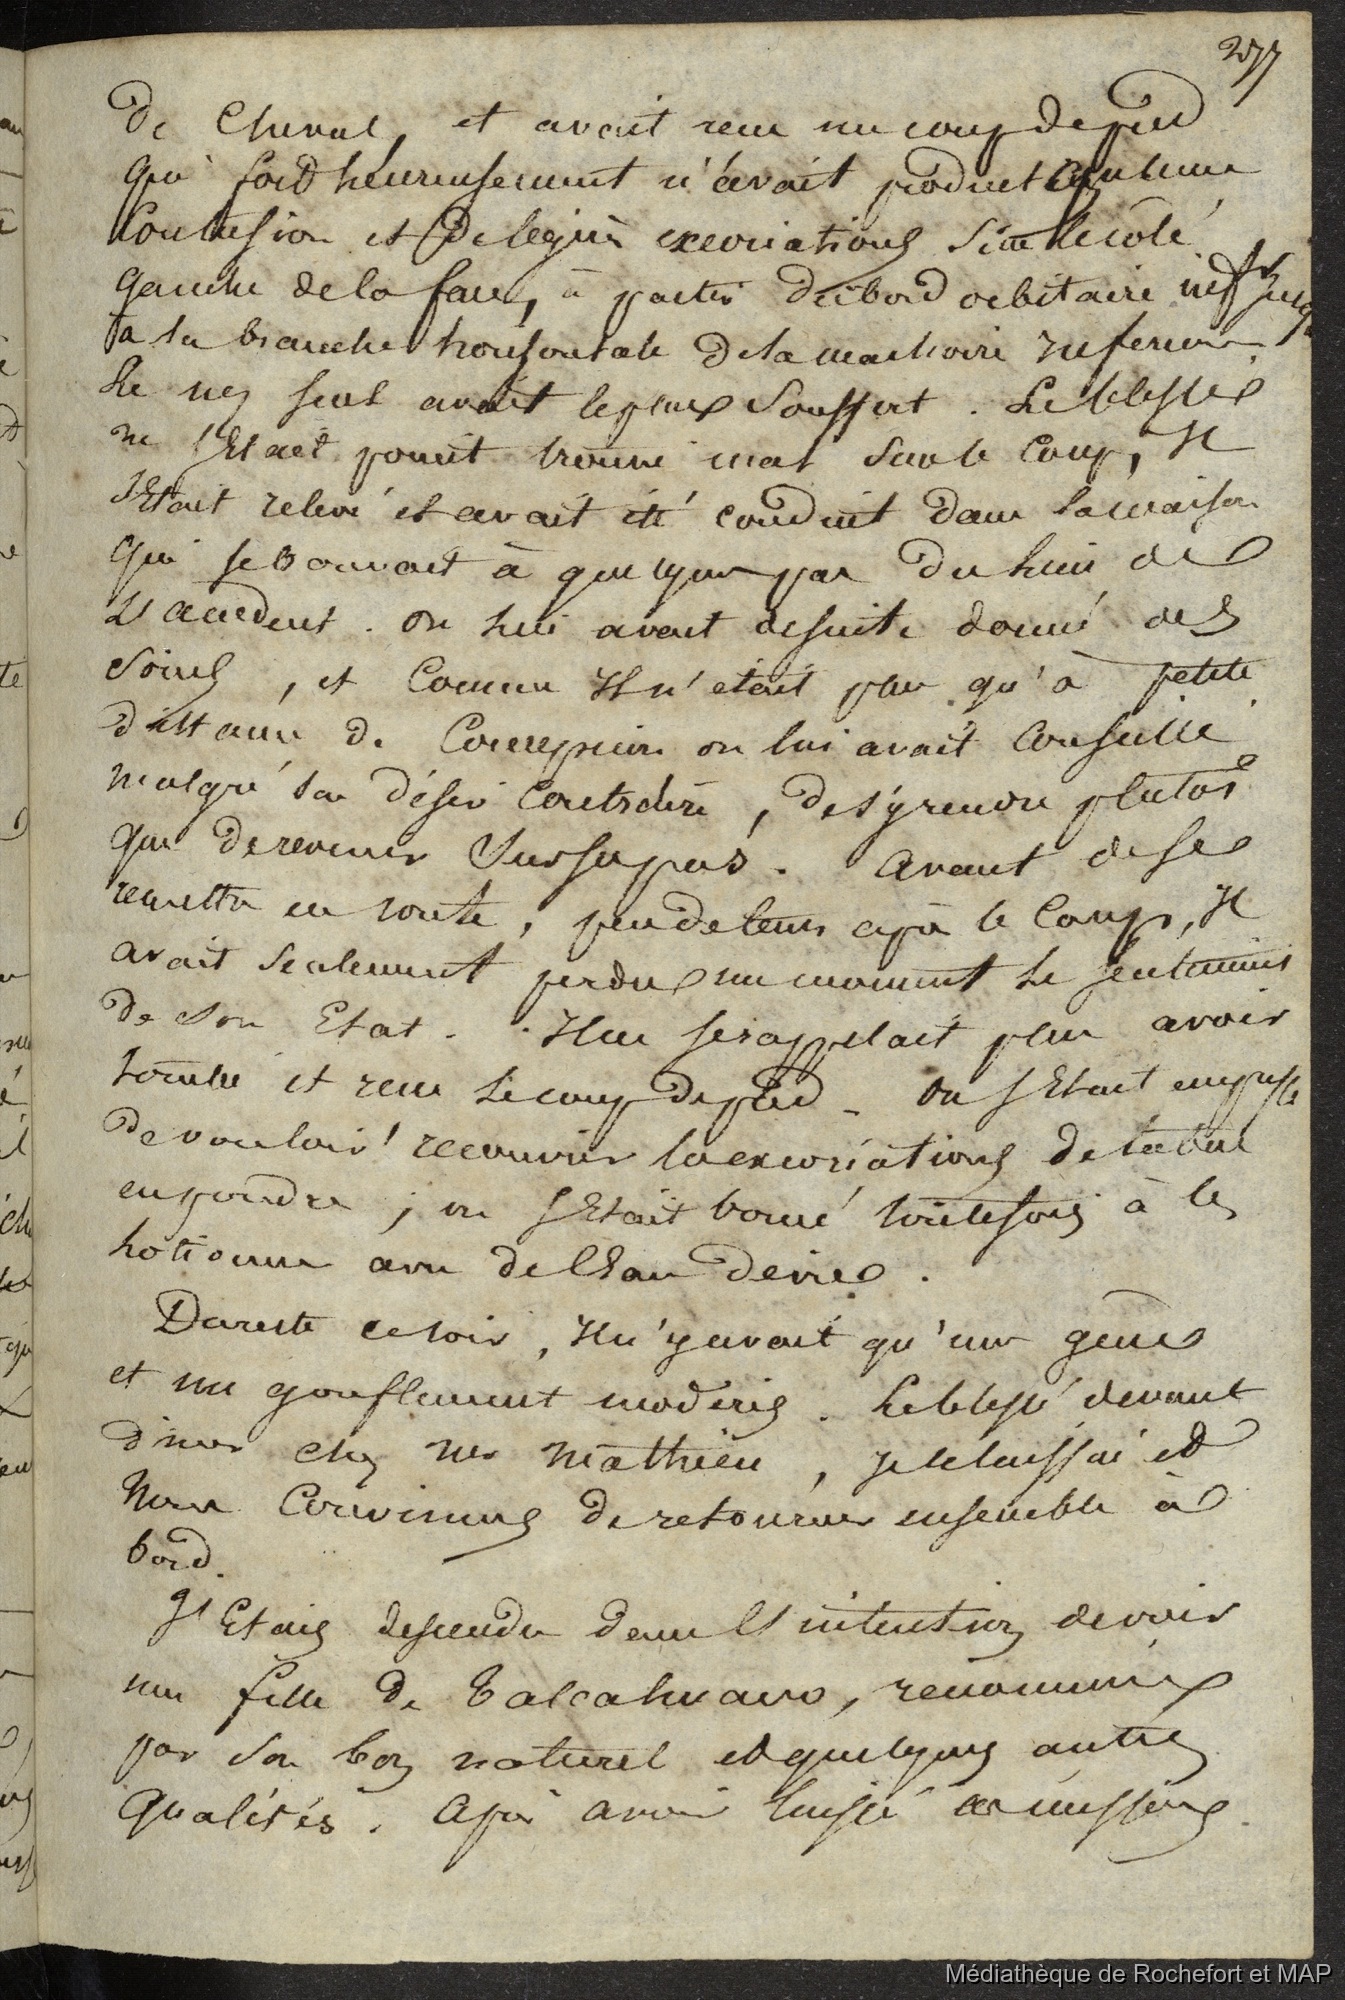 277
de cheval, et avait reçu un coup de pied
qui fort heureusement n'avait produit qu'une
Contusion et de legères excoriations sur le coté
gauche de la face, à partir du bord orbitaire infr jusqu
a la branche horisontale de la machoire inferieure.
Le nez seul avait le plus souffert. Le blessé
ne s'Etait point trouvé mal sur le coup, Il
s'Etait relevé et avait été conduit dans la maison
qui se trouvait à quelques pas du lieu de
L'accident. On lui avait desuite donné des
soins, et Comme Il n'etait plus qu'à petite
distance de Concepcion on lui avait Conseillé
malgré son désir Contraire, de s'y rendre plutot
que de revenir sur ses pas. avant de se
remettre en route, peu de tems après le Coup, Il
avait seulement perdu un moment le sentiment
de son Etat. Il ne se rappelait plus avoir
tombé et reçu le coup de pied. On s'Etait empressé
de vouloir recouvrir les excoriations de tabac
en poudre, on s'Etait borné toutefois à les
lotionner avec de l'Eau de vie.
Dureste ce soir, Il n'y avait qu'une gène
et un gonflement modérés. Le blessé devant
diner chez Mr Mathieu, je le laissai et
Nous Convinmes de retourner ensemble à
bord.
J'Etais descendu dans l'intention de voir
une fille de Talcahuano, renommée
par son bon naturel et quelques autres
qualités. Après avoir laissé
Médiathèque de Rochefort et MAP